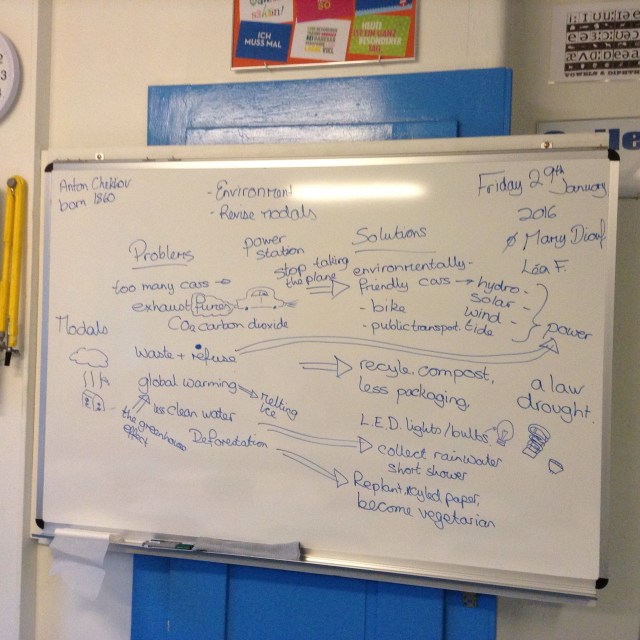 ICH
MUSS MAL
Anton Chekhov
born 1860
- Environment
- Revise modals
Friday 29th January
2016
Mary Diouf
Lsa F.
Problems
power
station
Solutions
stop taking
the plane
too many cars
exhaust Fumes
CO2 carbon dioxide
environmentally-
friendly cars → hydro -
solar -
wind -
tide
power
- bike
- public transpot
Modals
waste + refuse
recyle, compost,
less packaging
global warming
Melting
ice
less clean water
the greenhouse
effect
Deforestation
L.E.D. lights/bulbs
collect rainwater
short shower
Replant, rcyled paper,
become vegetarian
a law
drought.